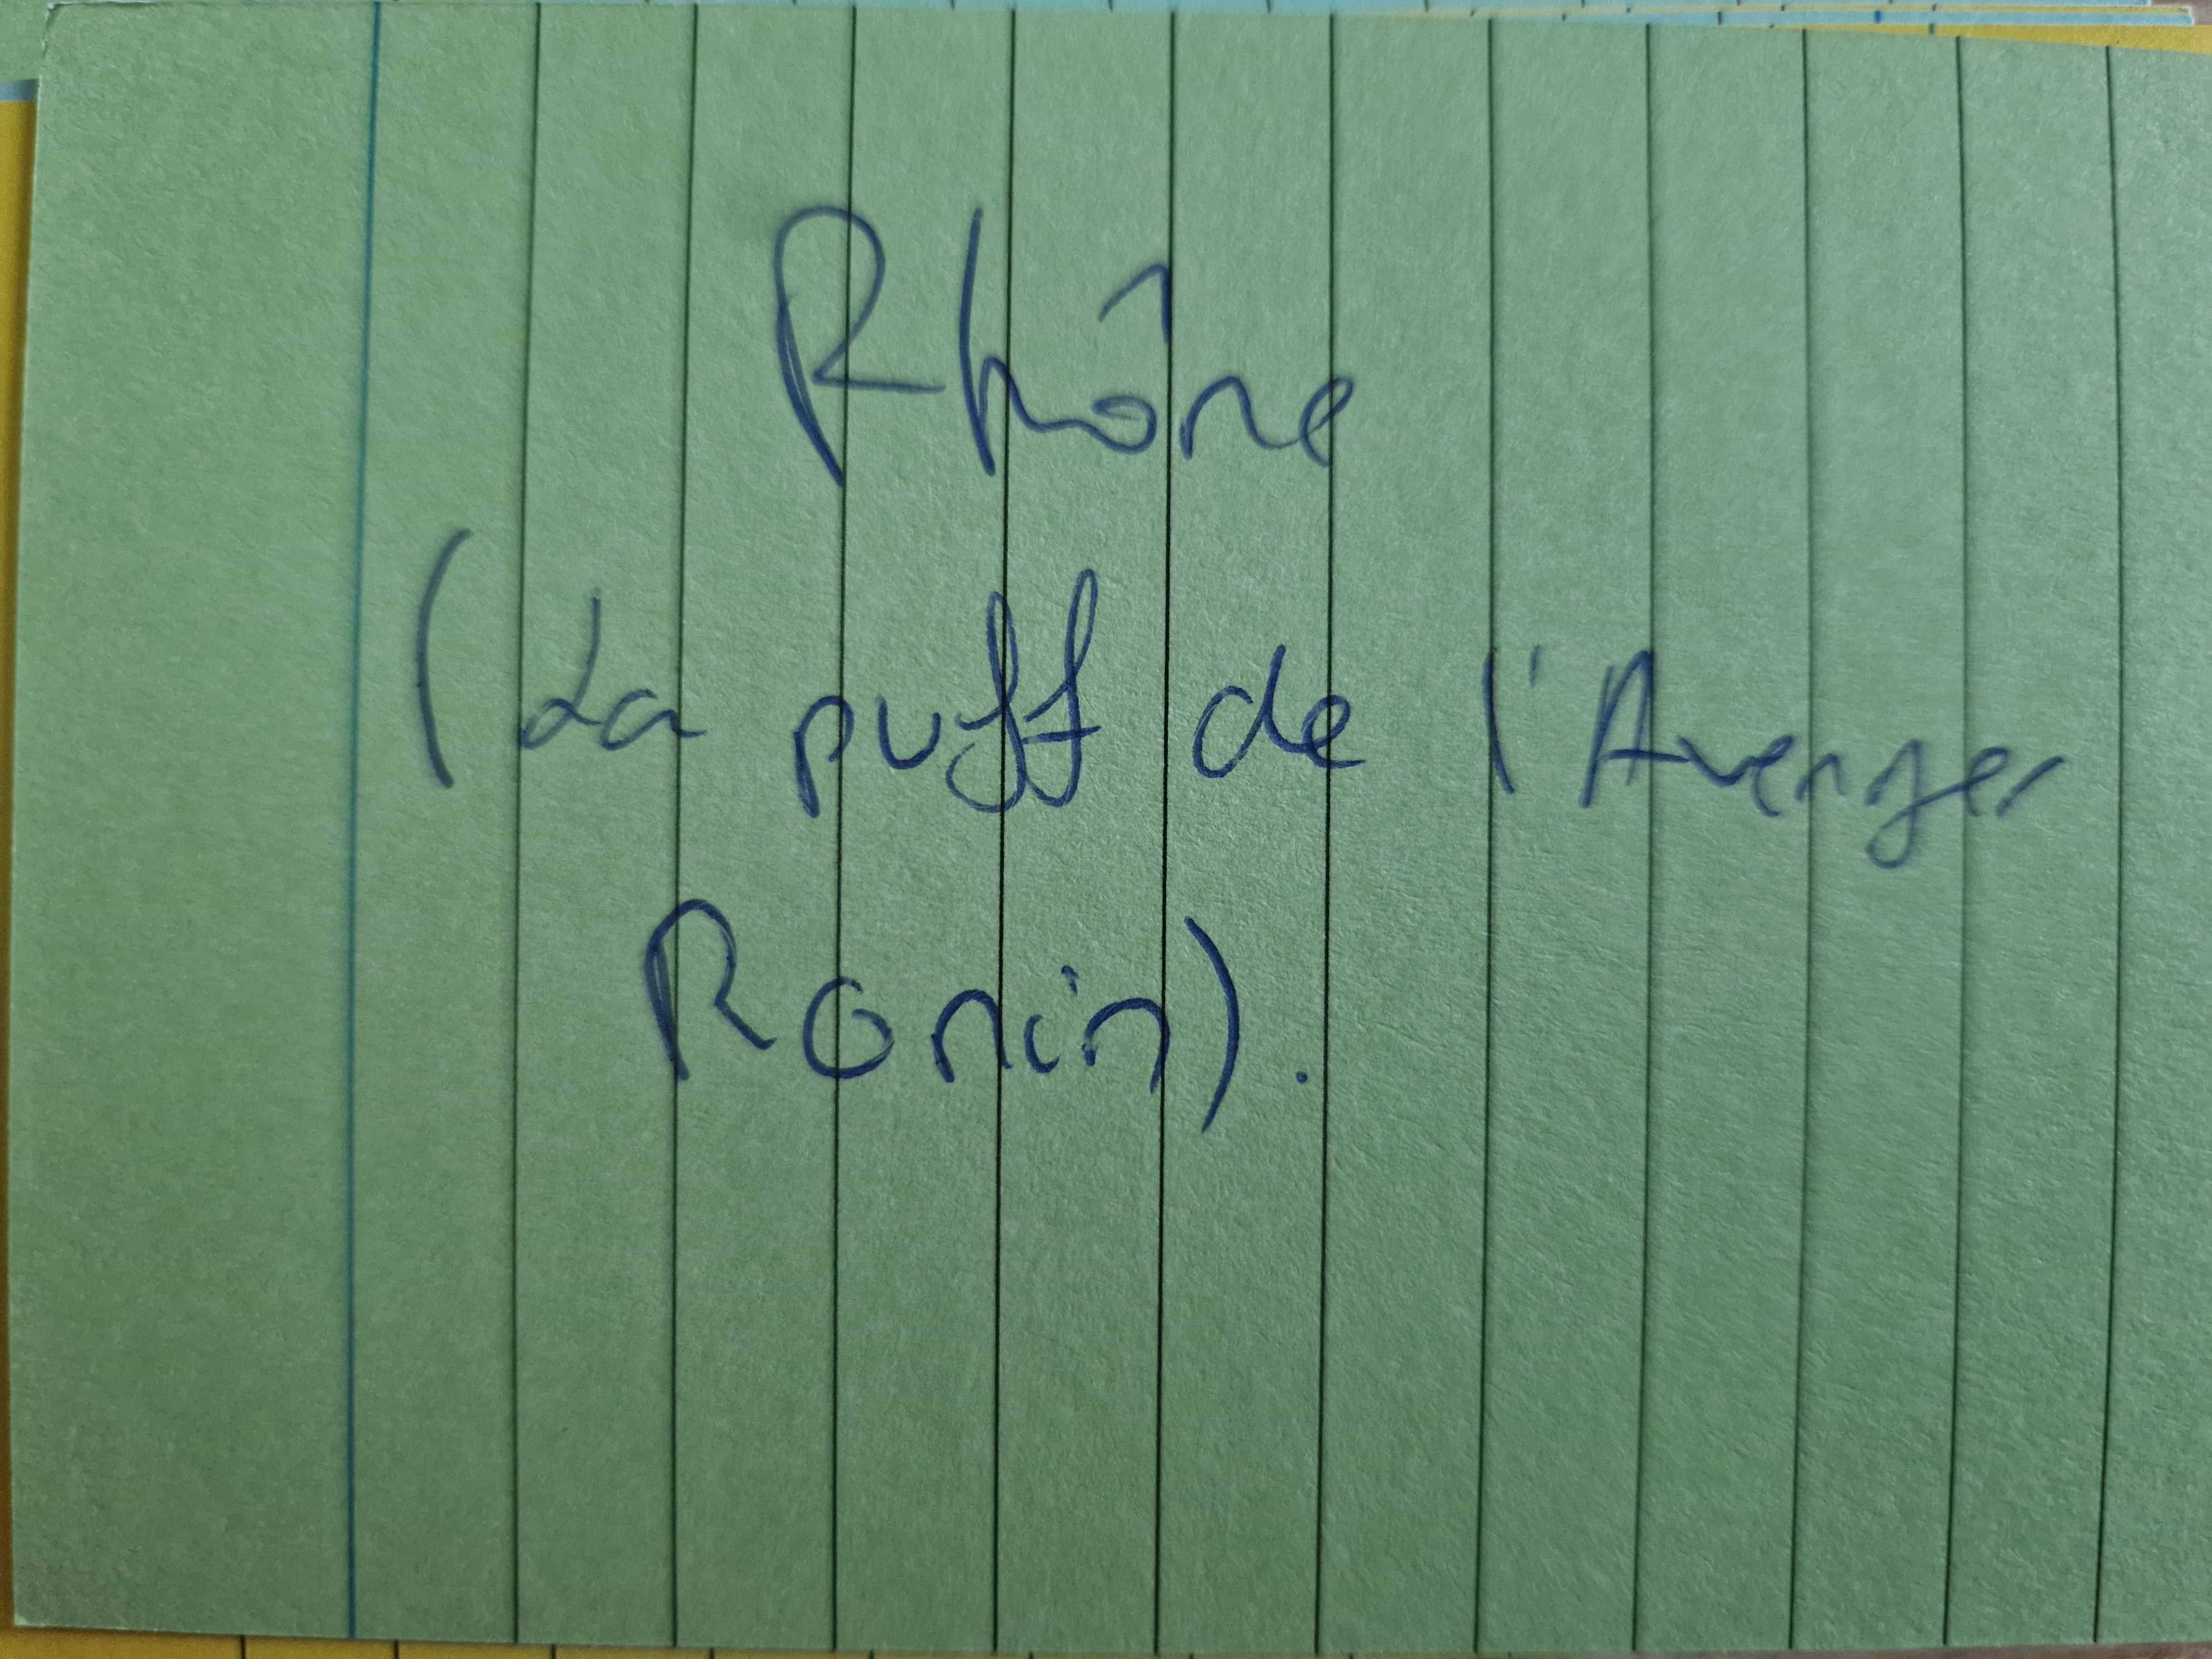 Rhône
(La puff de l'Avenger
Ronin).